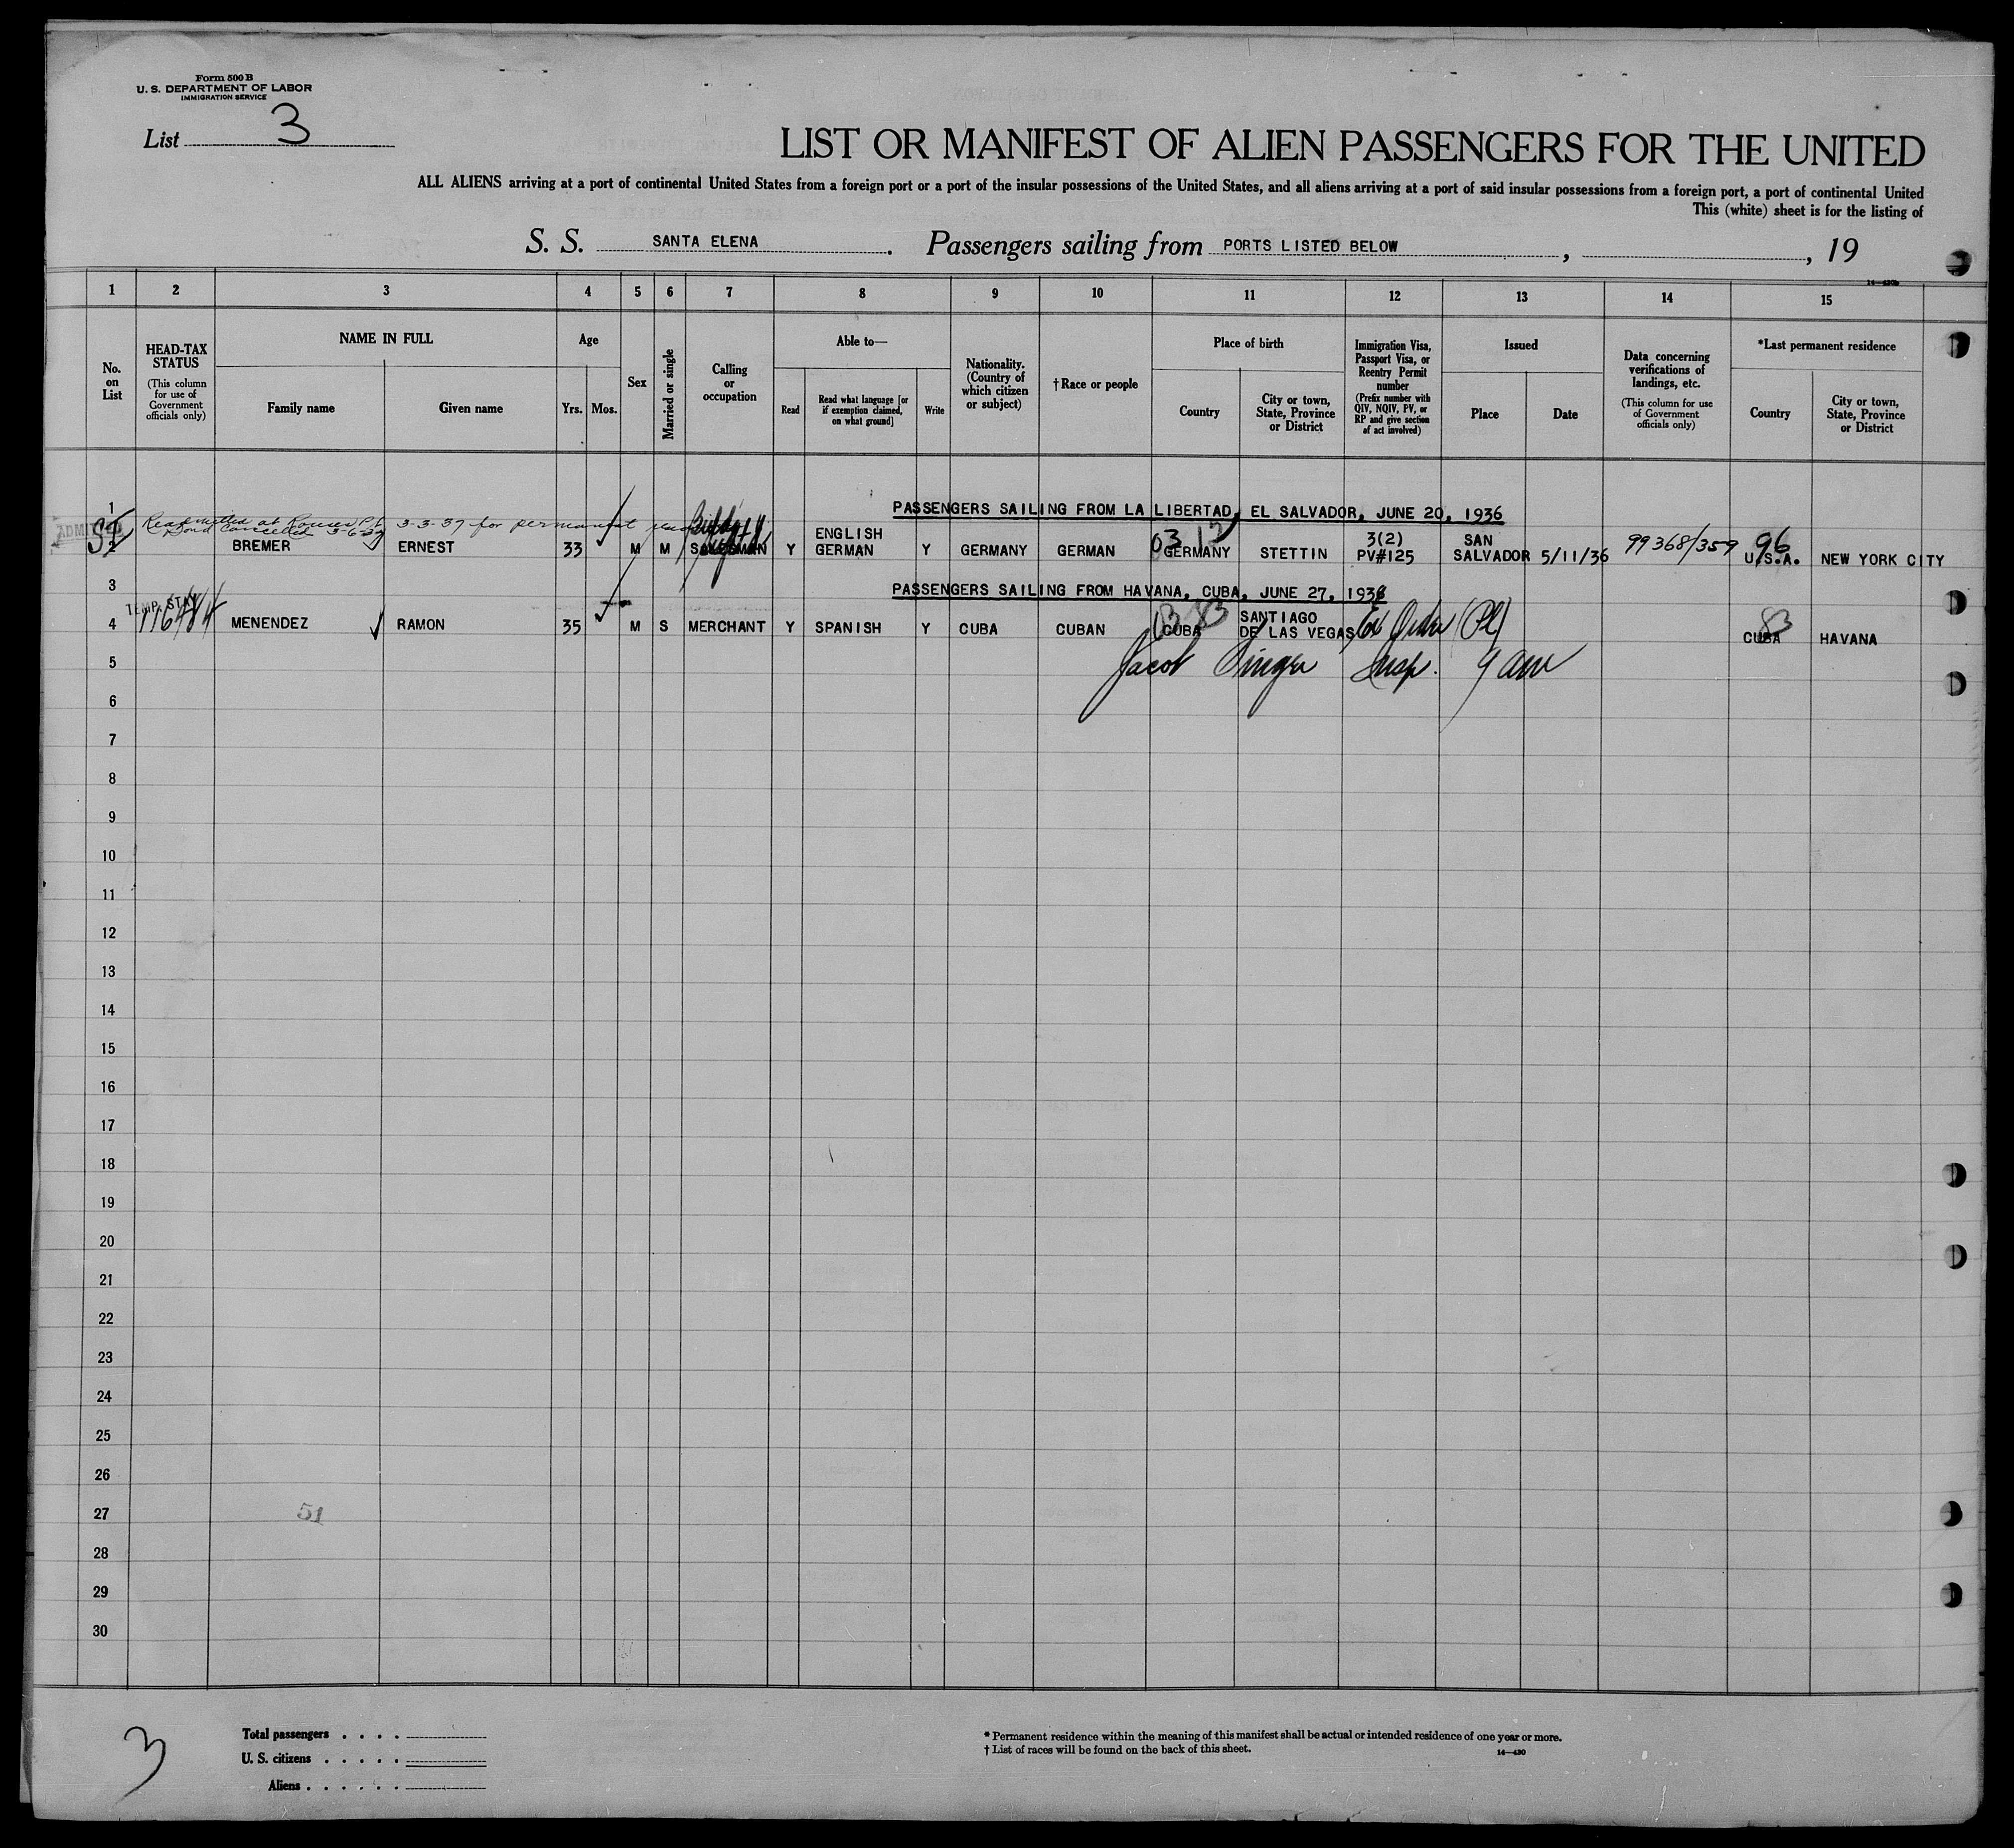 Form 500 B
U. S. DEPARTMENT OF LABOR
IMMIGRATION SERVICE
List 3
LIST OR MANIFEST OF ALIEN PASSENGERS FOR THE UNITED
ALL ALIENS arriving at a port of continental United States from a foreign port or a port of the insular possessions of the United States, and all aliens arriving at a port of said insular possessions from a foreign port, a port of continental United
This (white) sheet is for the listing of
S. S. SANTA ELENA. Passengers sailing from PORTS LISTED BELOW, , 19
14—430b
1 2 3 4 5 6 7 8 9 10 11 12 13 14 15
No. on List
HEAD-TAX STATUS
(This column for use of Government officials only)
NAME IN FULL
Family name
Given name
Age
Yrs. Mos.
Sex
Married or single
Calling or occupation
Able to—
Read
Read what language [or if exemption claimed, on what ground]
Write
Nationality. (Country of which citizen or subject)
† Race or people
Place of birth
Country
City or town, State, Province or District
Immigration Visa, Passport Visa, or Reentry Permit number
(Prefix number with QIV, NQIV, PV, or RP and give section of act involved)
Issued
Place
Date
Data concerning verifications of landings, etc.
(This column for use of Government officials only)
*Last permanent residence
Country
City or town, State, Province or District
1 PASSENGERS SAILING FROM LA LIBERTAD, EL SALVADOR, JUNE 20, 1936
Readmitted at Rouses Pt 3-3-37 for permanent
Bond Cancelled 3-6-37
ADMITTED
2 BREMER ERNEST 33 M M SALESMAN Y ENGLISH GERMAN Y GERMANY GERMAN GERMANY STETTIN 3(2) PV#125 SAN SALVADOR 5/11/36 99368/359 U.S.A. NEW YORK CITY
03 12 96
3 PASSENGERS SAILING FROM HAVANA, CUBA, JUNE 27, 1936
TEMP. STAY
4 MENENDEZ RAMON 35 M S MERCHANT Y SPANISH Y CUBA CUBAN CUBA SANTIAGO DE LAS VEGAS Ex Order (Pl) CUBA HAVANA
83 83
5 Jacob Singer Insp. 9 am
6
7
8
9
10
11
12
13
14
15
16
17
18
19
20
21
22
23
24
25
26
27 51
28
29
30
3
Total passengers . . . .
U. S. citizens . . . . .
Aliens . . . . . .
* Permanent residence within the meaning of this manifest shall be actual or intended residence of one year or more.
† List of races will be found on the back of this sheet.
14—430